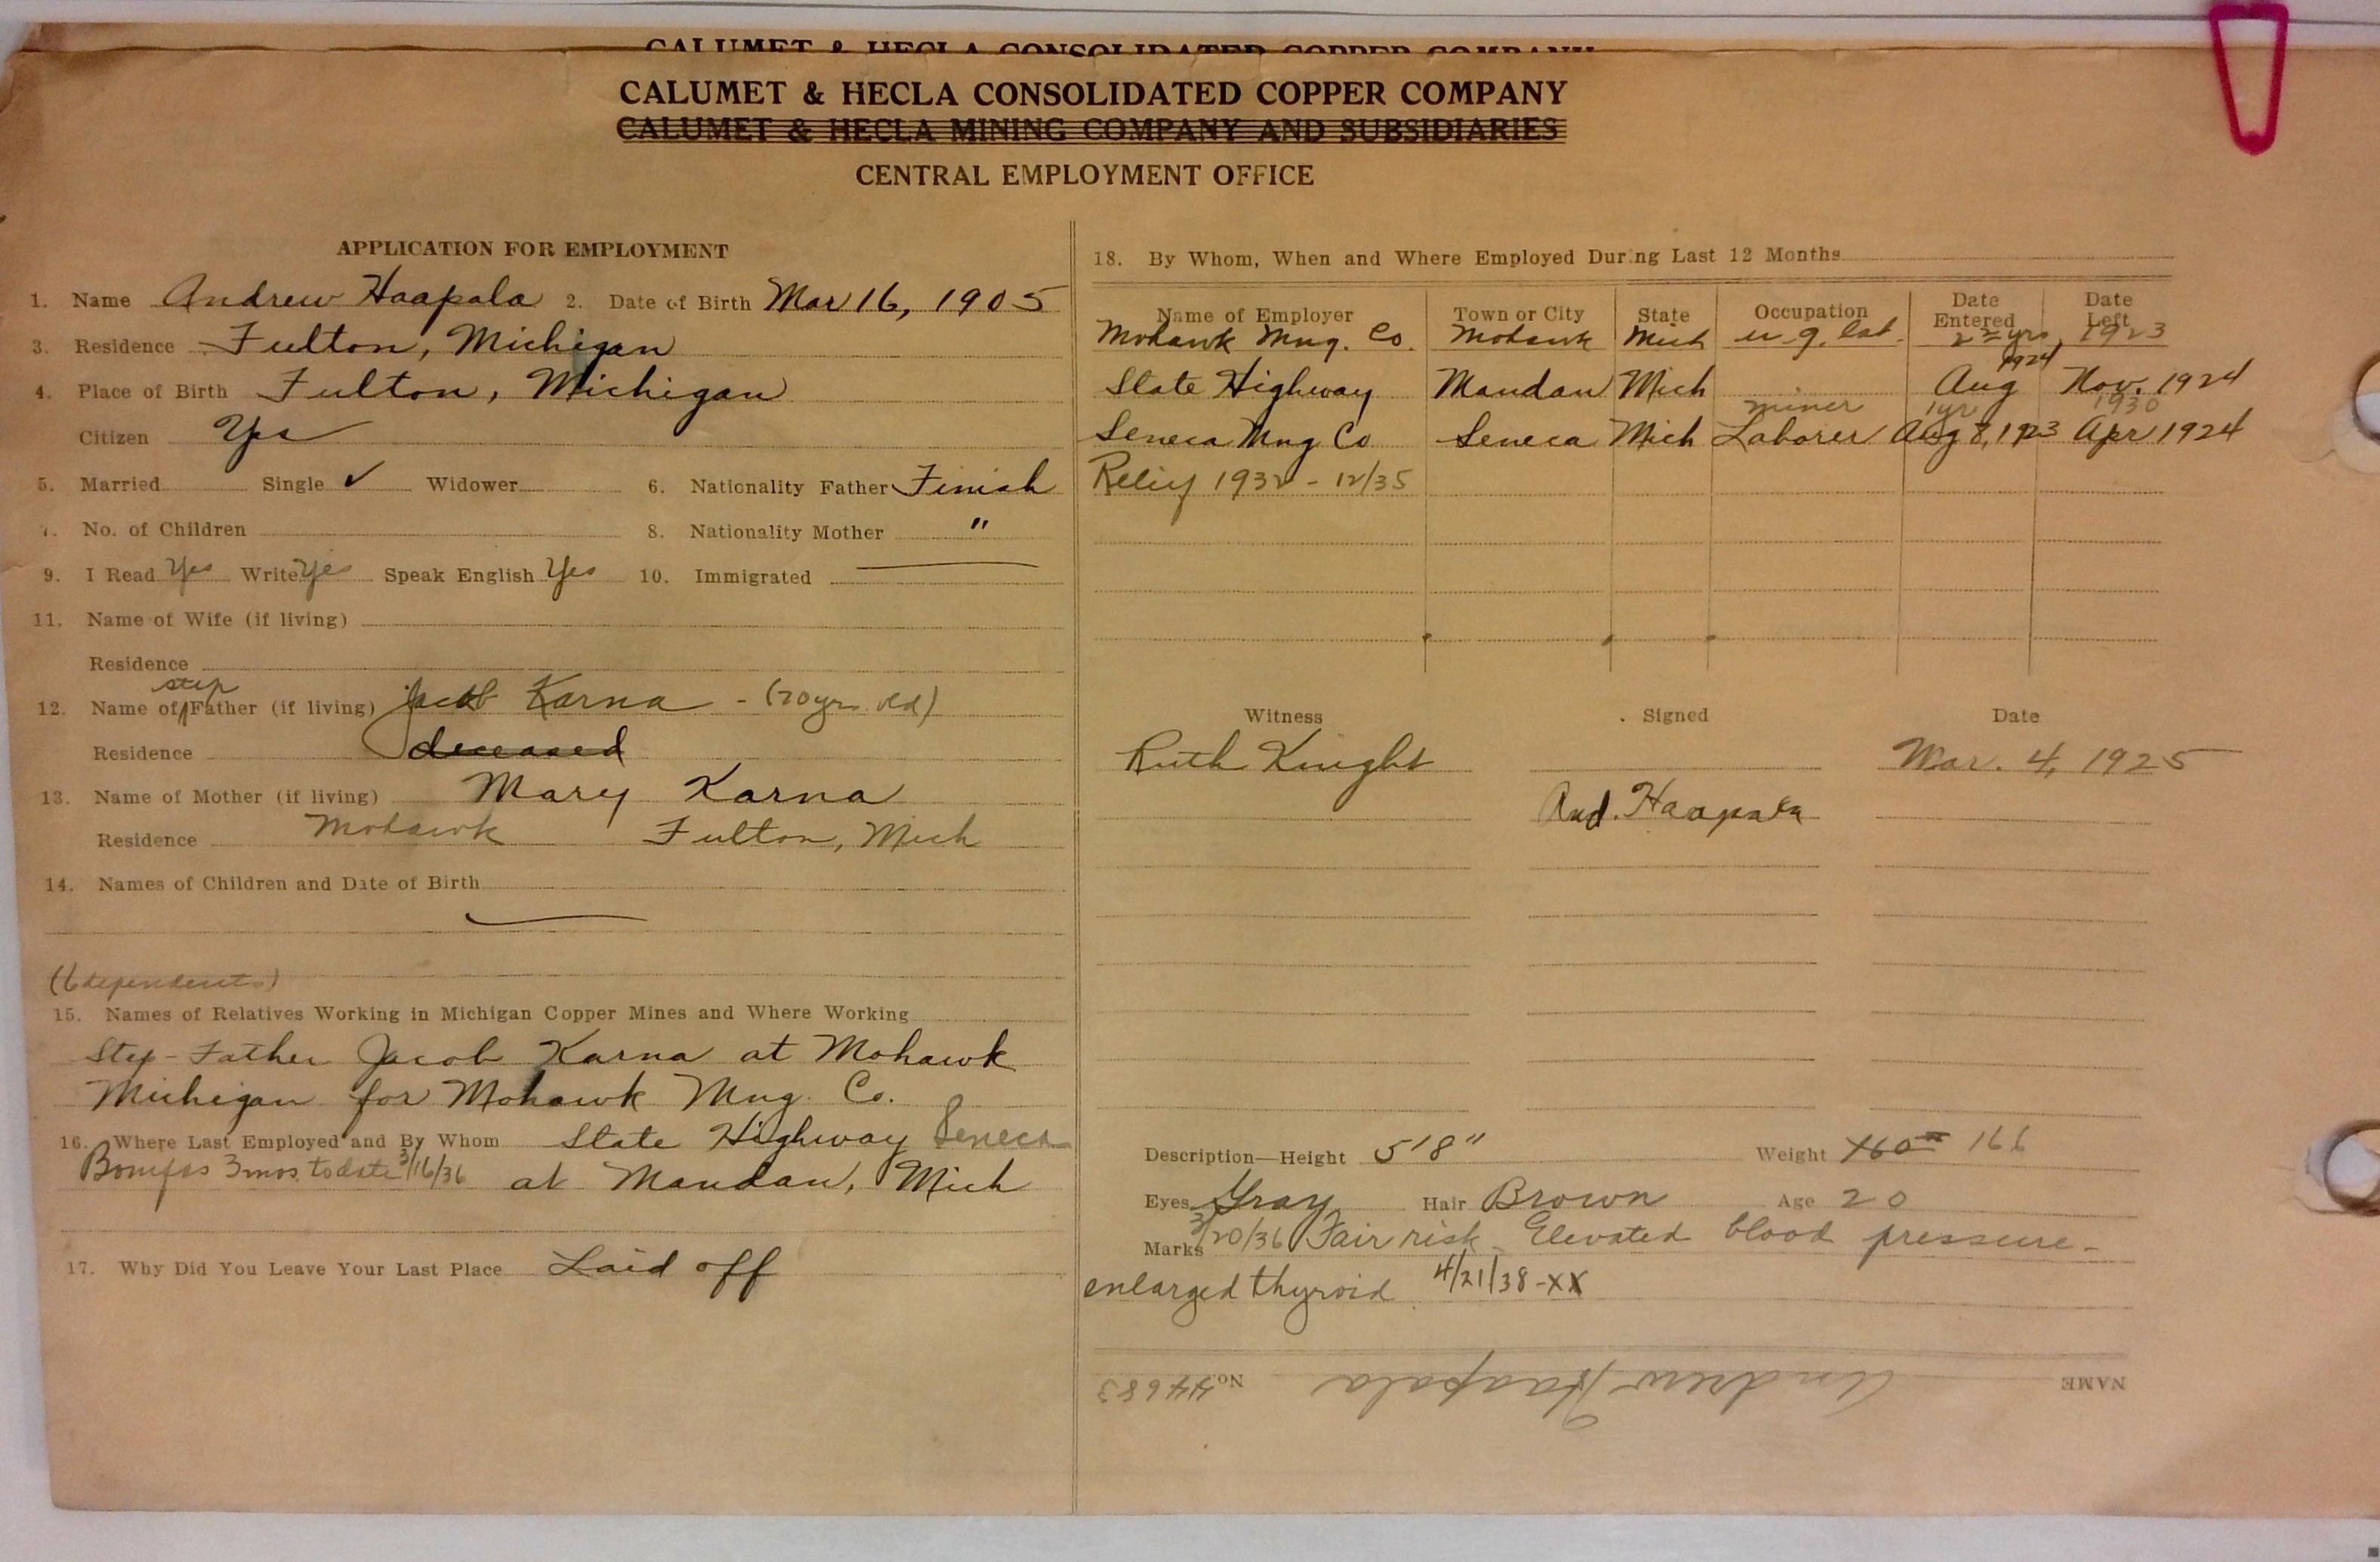 CALUMET & HECLA CONSOLIDATED COPPER COMPANY
CALUMET & HECLA CONSOLIDATED COPPER COMPANY
CALUMET & HECLA MINING COMPANY AND SUBSIDIARIES
CENTRAL EMPLOYMENT OFFICE
APPLICATION FOR EMPLOYMENT
1. Name Andrew Haapala 2. Date of Birth Mar 16, 1905
3. Residence Fulton, Michigan
4. Place of Birth Fulton, Michigan
Citizen Yes
5. Married Single ✓ Widower 6. Nationality Father Finish
7. No. of Children 8. Nationality Mother "
9. I Read Yes Write Yes Speak English Yes 10. Immigrated
11. Name of Wife (if living)
Residence
step
12. Name of Father (if living) Jacob Karna - (70 yrs old)
Residence deceased
13. Name of Mother (if living) Mary Karna
Residence Mohawk Fulton, Mich
14. Names of Children and Date of Birth
(6 dependents)
15. Names of Relatives Working in Michigan Copper Mines and Where Working
Step-Father Jacob Karna at Mohawk
Michigan for Mohawk Mng. Co.
16. Where Last Employed and By Whom State Highway Seneca
3mos. to date 3/16/36 at Mandan, Mich
17. Why Did You Leave Your Last Place Laid off
18. By Whom, When and Where Employed During Last 12 Months
Name of Employer Town or City State Occupation Date Entered Date Left
Mohawk Mng. Co. Mohawk Mich u.g. lab. 2 yrs, 1923
1924
State Highway Mandan Mich Aug Nov. 1924
miner 1yr 1930
Seneca Mng Co Seneca Mich Laborer Aug 8, 1923 Apr 1924
Relief 1932 - 12/35
Witness Signed Date
Ruth Knight Mar. 4, 1925
And. Haapala
Description—Height 5'8" Weight 160 166
Eyes Gray Hair Brown Age 20
Marks 3/20/36 Fair risk - Elevated blood pressure -
enlarged thyroid. 4/21/38 -XX
NAME Andrew Haapala No. 44683